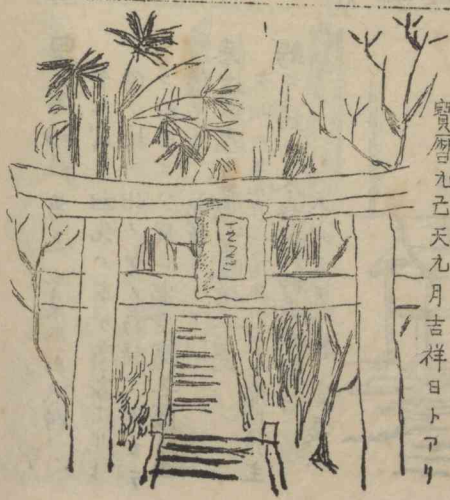 寶曆九己天九月吉祥日トアリ